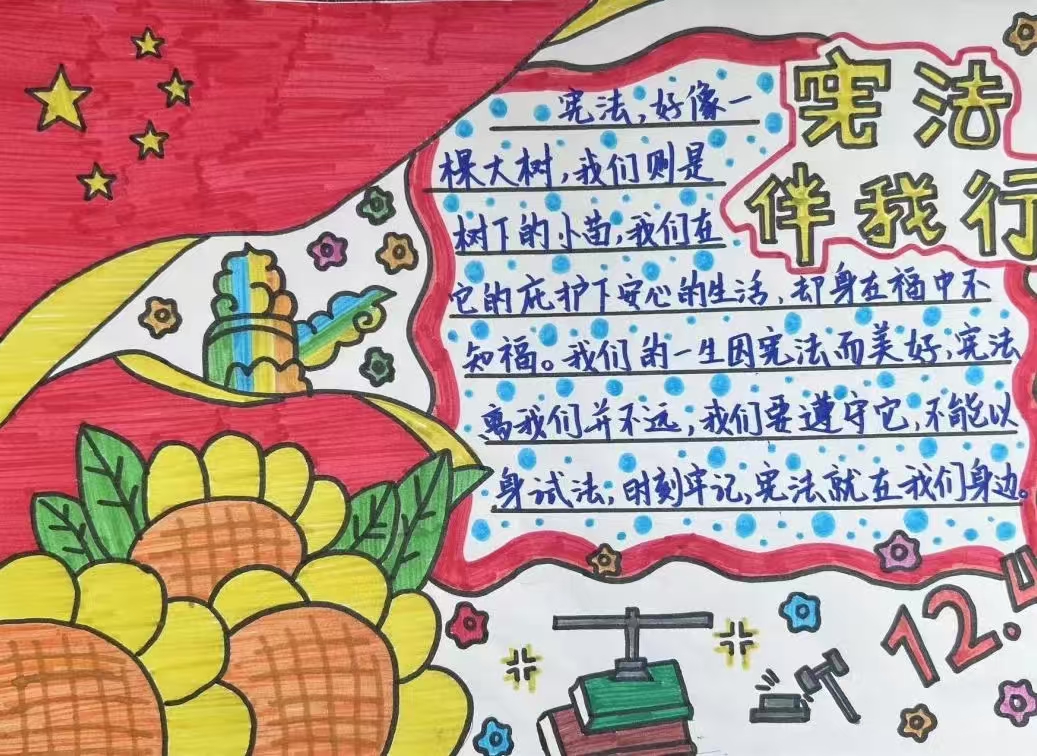 宪法
伴我行
宪法,好像一
棵大树,我们则是
树下的小苗,我们在
它的庇护下安心的生活,却身在福中不
知福。我们的一生因宪法而美好,宪法
离我们并不远,我们要遵守它,不能以
身试法,时刻牢记,宪法就在我们身边。
12.4